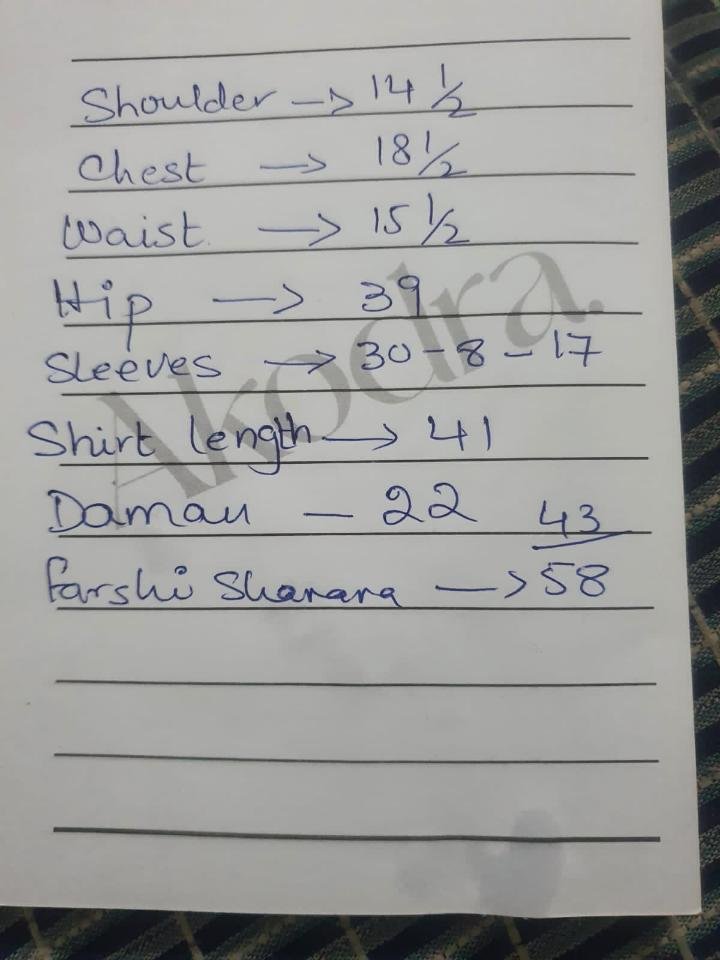 Shoulder → 14 1/2
Chest → 18 1/2
Waist → 15 1/2
Hip → 39
Sleeves → 30 - 8 - 17
Akodra.
Shirt length → 41
Daman — 22 43
Farshi Sharara → 58